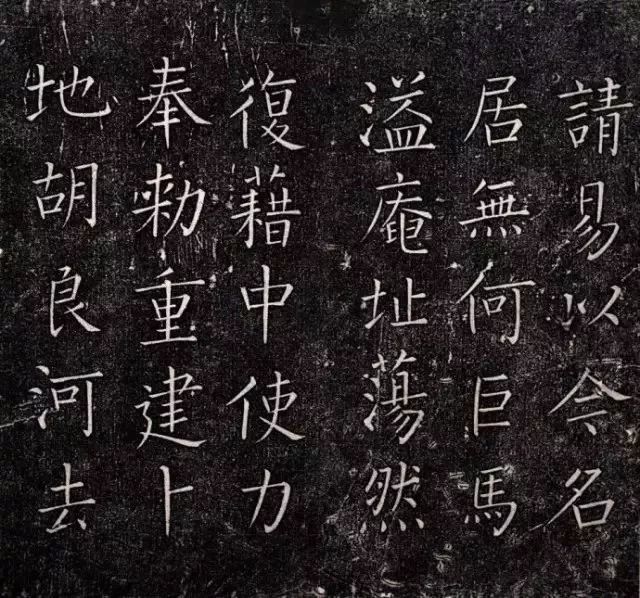 請易以今名
居無何巨馬
溢庵址蕩然
復藉中使力
奉勑重建卜
地胡良河去